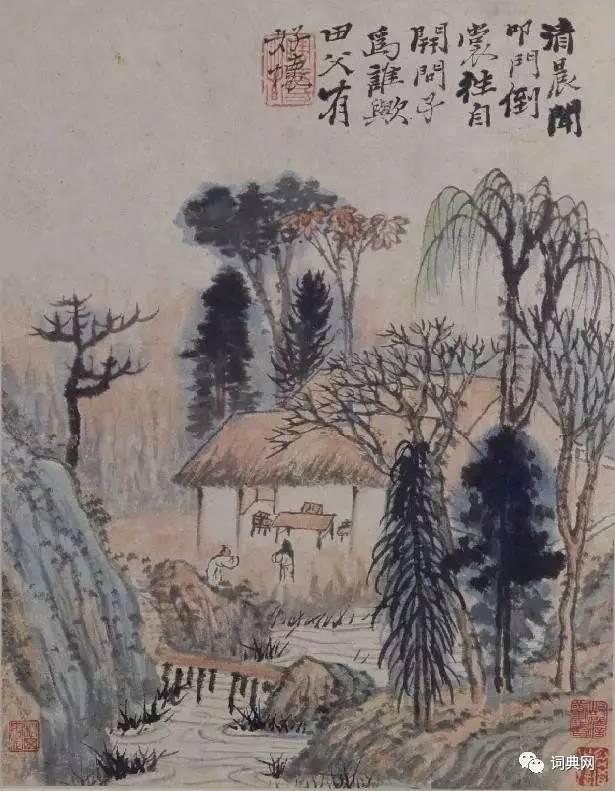 清晨聞
叩門倒
裳往自
開問子
爲誰歟
田父有
好懷
词典网